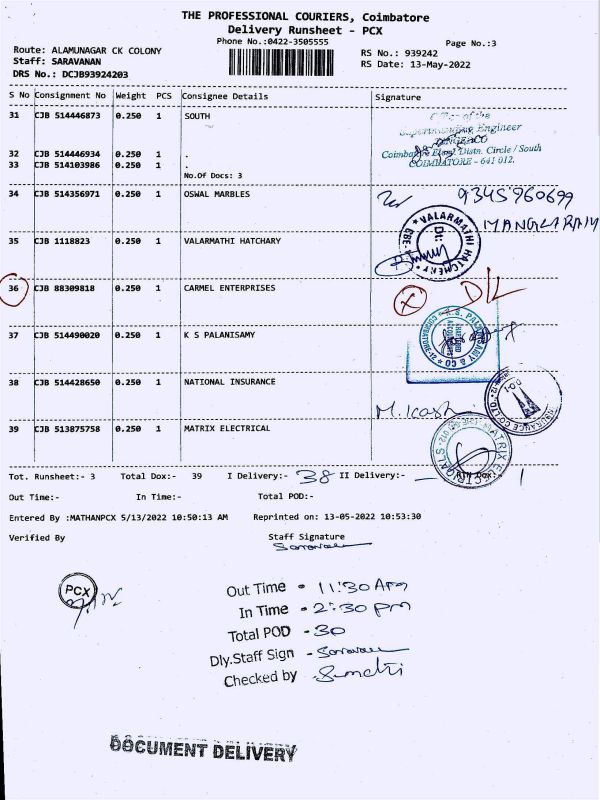 THE PROFESSIONAL COURIERS, Coimbatore
Delivery Runsheet - PCX
Phone No.:0422-3505555
Page No.:3
Route: ALAMUNAGAR CK COLONY
RS No.: 939242
Staff: SARAVANAN
RS Date: 13-May-2022
DRS No.: DCJB93924203
S No Consignment No Weight PCS Consignee Details Signature
31 CJB 514446873 0.250 1 SOUTH
Office of the
Superintending Engineer
TANGEDCO
32 CJB 514446934 0.250 1 .
Coimbatore Elecy. Distn. Circle / South
33 CJB 514103986 0.250 1 .
COIMBATORE - 641 012.
No.Of Docs: 3
34 CJB 514356971 0.250 1 OSWAL MARBLES
9345960699
VALARMATHI HATCHERY
35 CJB 1118823 0.250 1 VALARMATHI HATCHARY
36 CJB 88309818 0.250 1 CARMEL ENTERPRISES
X D/L
37 CJB 514490020 0.250 1 K S PALANISAMY
K.S. PALANISAMY & CO
COIMBATORE-12
38 CJB 514428650 0.250 1 NATIONAL INSURANCE
39 CJB 513875758 0.250 1 MATRIX ELECTRICAL
Tot. Runsheet:- 3 Total Dox:- 39 I Delivery:- 38 II Delivery:- - RTN Dox:- 1
Out Time:- In Time:- Total POD:-
Entered By :MATHANPCX 5/13/2022 10:50:13 AM Reprinted on: 13-05-2022 10:53:30
Verified By Staff Signature
PCX
Out Time - 11:30 Am
In Time - 2:30 pm
Total POD - 30
Dly.Staff Sign -
Checked by -
DOCUMENT DELIVERY